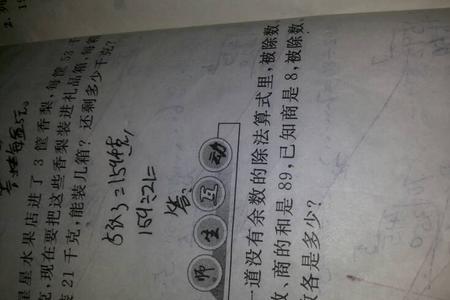 星星水果店进了 3 筐香梨,每筐 53 千
克,现在要把这些香梨装进礼品箱,每箱
21 千克,能装几箱?还剩多少千克?
53×3=159千克,
159÷21=
答:
师生互动
一道没有余数的除法算式里,被除数
数、商的和是 89,已知商是 8,被除数
数各是多少?